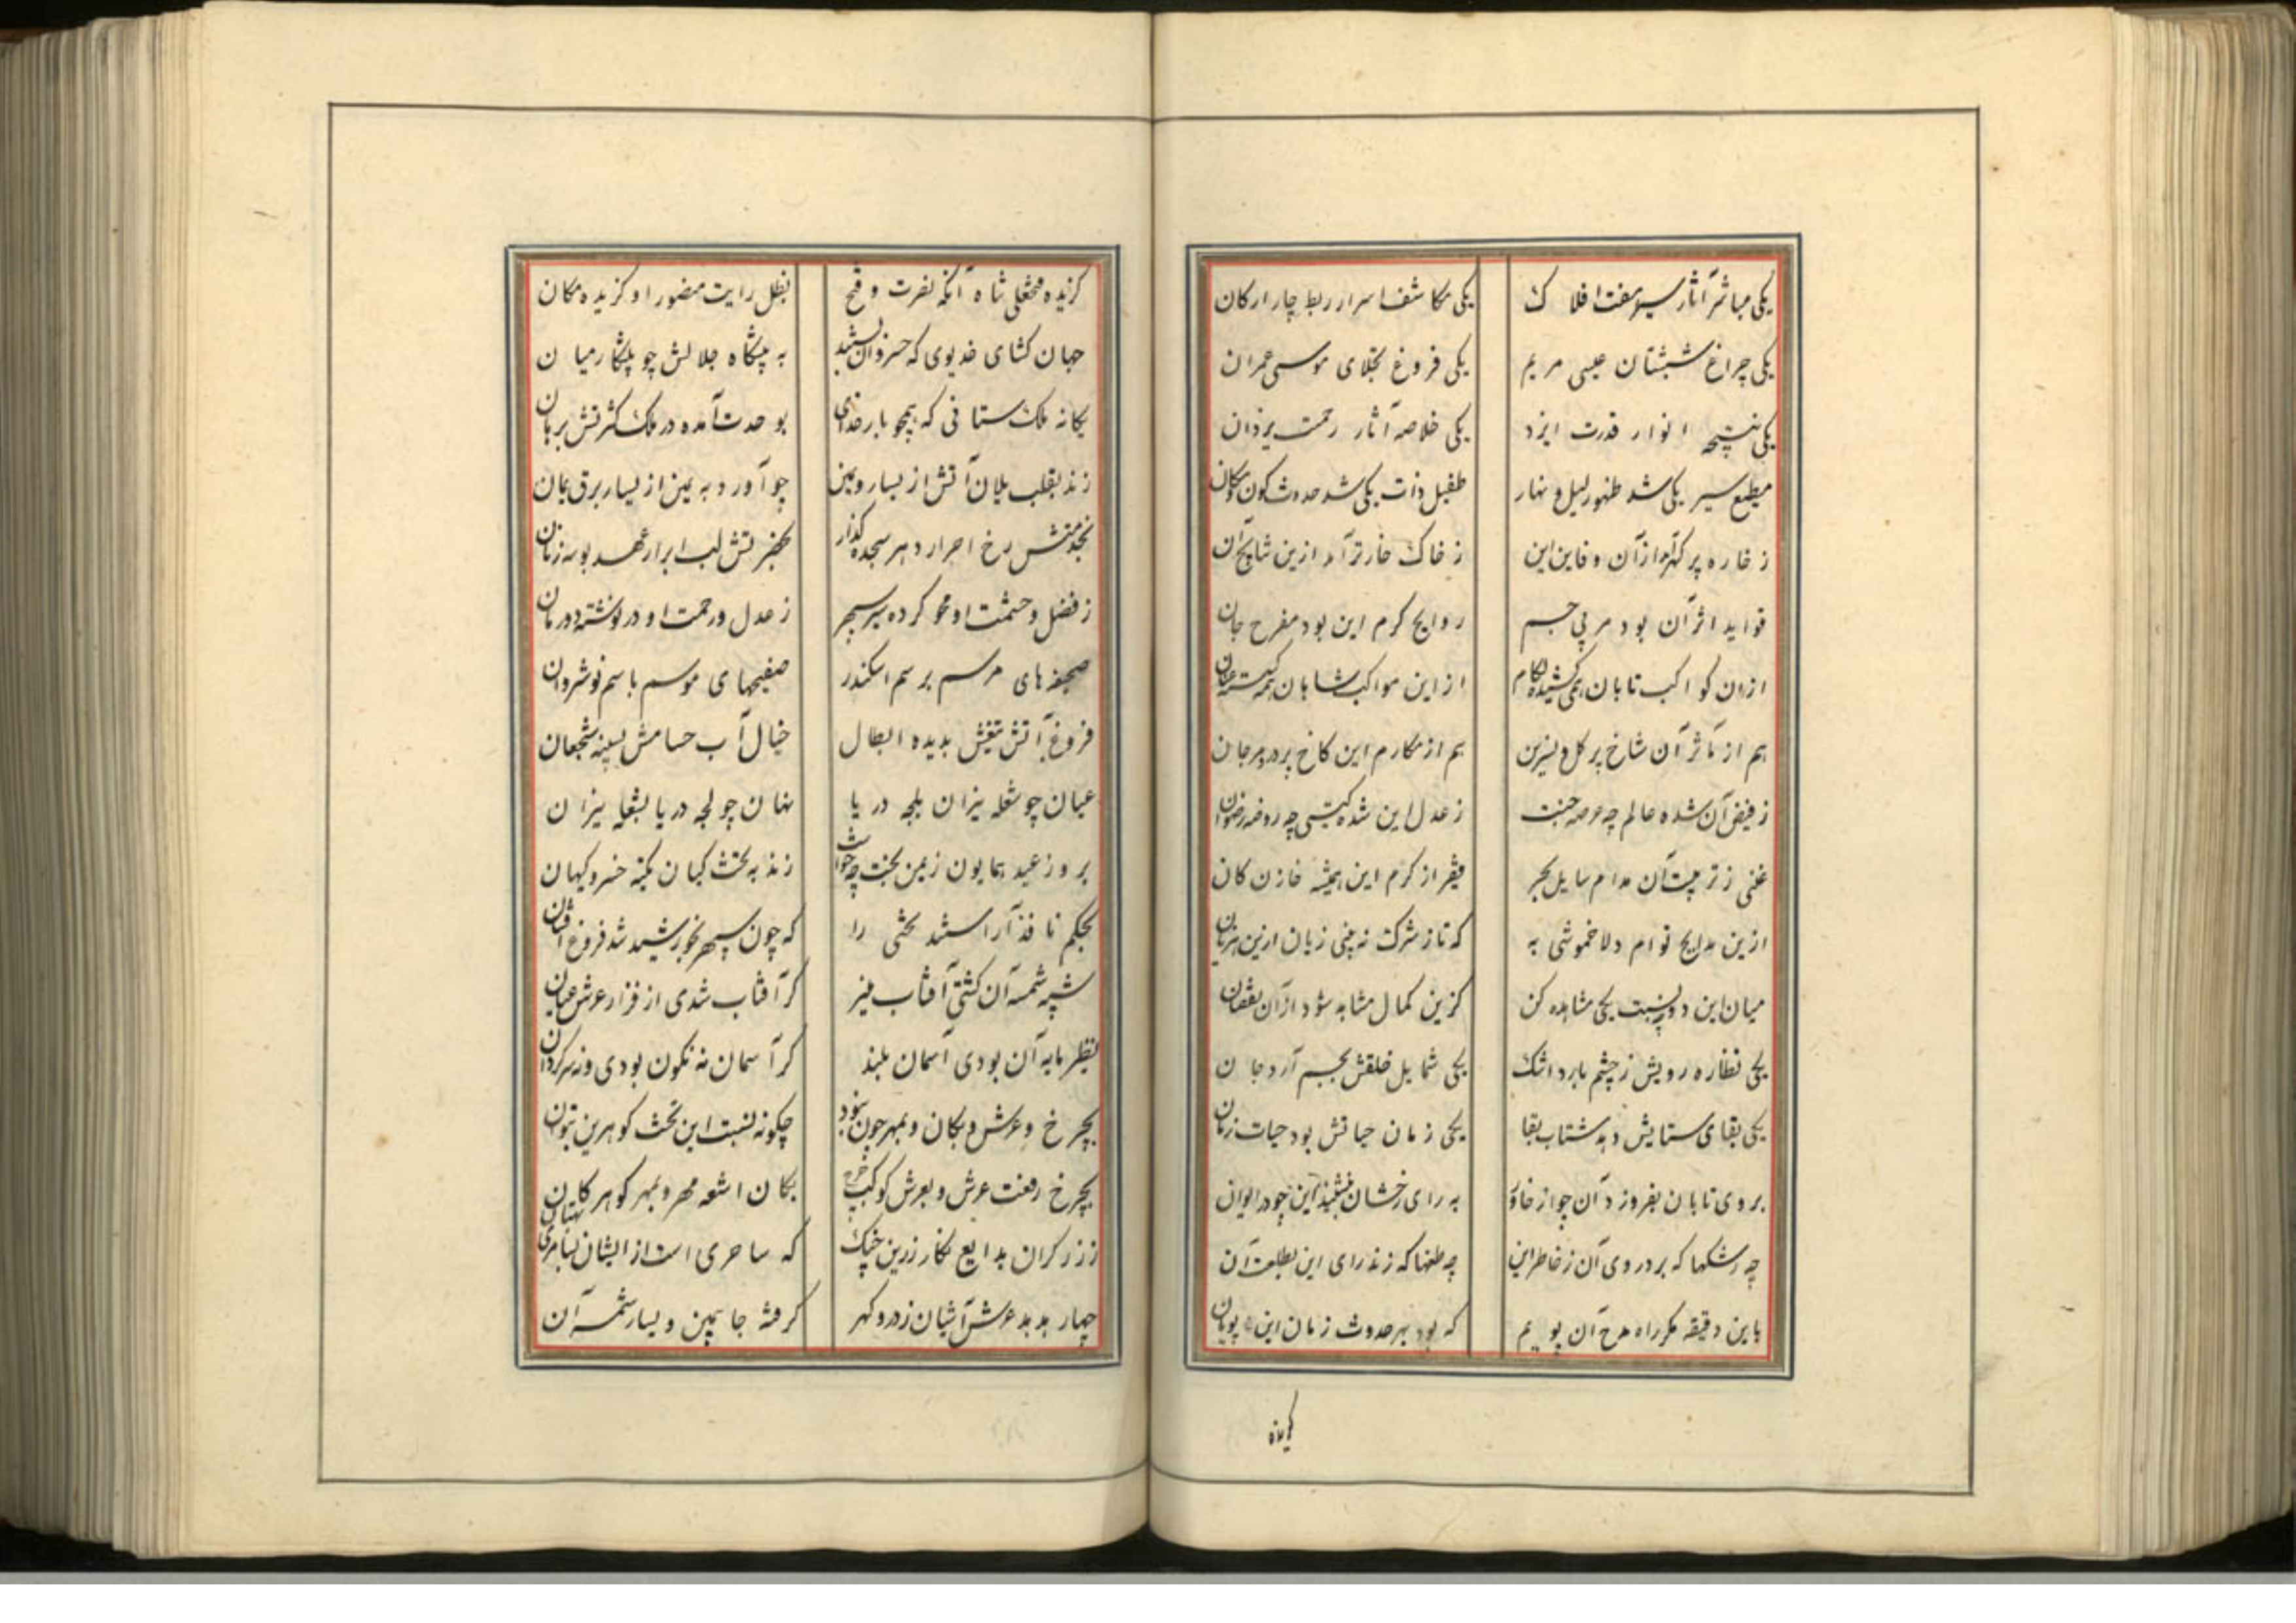 یکی مباشر آثار سیر هفت افلاک
یکی مکاشف اسرار ربط چار ارکان
یکی چراغ شبستان عیسی مریم
یکی فروغ تجلای موسی عمران
یکی نتیجه انوار قدرت ایزد
یکی خلاصه آثار رحمت یزدان
مطیع سیر یکی شد ظهور لیل و نهار
طفیل ذات یکی شد حدوث کون و مکان
ز خاره پر گهر از آن و این
ز خاک خار تر آمد ازین آن
فواید اثر آن بود مربی جسم
روایح کرم این بود مفرح جان
ازان کواکب تابان همی
از این مواکب شاهان همه
هم از مآثر آن شاخ پر گل و نسرین
هم از مکارم این کاخ پر در و مرجان
ز فیض آن شده عالم چه عرصه جنت
ز عدل این شده گیتی چه روضه رضوان
غنی ز تربیت آن مدام سایل بحر
فقیر از کرم این همیشه خازن کان
ازین مدایح توام دلا خموشی به
که تا ز شرکت نه بینی زیان ازین
میان این دو به نسبت یکی مشاهده کن
کزین کمال مشابه شود از آن نقصان
یکی نظاره رویش ز چشم بارد اشک
یکی شمایل خلقش بجسم آرد جان
یکی بقای ستایش دهد شتاب بقا
یکی زمان حیاتش بود حیات زمان
بروی تابان بفروزد آن چو از خاور
به رای رخشان بنشیند این چو در ایوان
چه رشکها که برد روی آن ز خاطر این
چه طعنها که زند رای این بطلعت آن
باین دقیقه مگر راه مدح آن پویم
که بود بهر حدوث زمان این پویان
گزیده
گزیده فتحعلی شاه آنکه نصرت و فتح
بظل رایت منصور او گزیده مکان
جهان گشای خدیوی که خسروان
به پیشگاه جلالش چو پیشکار میان
یگانه ملک ستانی که همچو بار خدای
بوحدت آمده در ملک کثرتش برهان
زند بقلب یلان آتش از یسار و یمین
چو آورد به یمین از یسار برق یمان
بخدمتش رخ احرار دهر سجده گذار
بخنجرش لب ابرار عهد بوسه زنان
ز فضل و حشمت او محو کرده سیر سپهر
ز عدل و رحمت او در نوشته دور زمان
صحیفه های مرسم برسم اسکندر
صفیحهای موسم باسم نوشروان
فروغ آتش تیغش بدیده ابطال
خیال آب حسامش بسینه شجعان
عیان چو شعله نیران بلجه دریا
نهان چو لجه دریا بشعله نیران
بروز عید همایون زمین بخت چه خواست
زند به تخت کیان تکیه خسرو کیهان
بحکم نافذ آراستند تختی را
که چون سپهر بخورشید شد فروغ افشان
شبیه شمسه آن گشتی آفتاب منیر
گر آفتاب شدی از فراز عرش عیان
نظیر پایه آن بودی آسمان بلند
گر آسمان نه نگون بودی و نه سرگردان
بچرخ و عرش و بکان و بمهر چون نبود
چگونه نسبت این تخت گوهرین بتوان
بچرخ رفعت عرش و بعرش کوکب چرخ
بکان اشعه مهر و بمهر گوهر کان
ز زرگران بدایع نگار زرین
که ساحری است از ایشان
چهار هدهد عرش آشیان ز در و گهر
گرفته جا بیمین و یسار شمسه آن